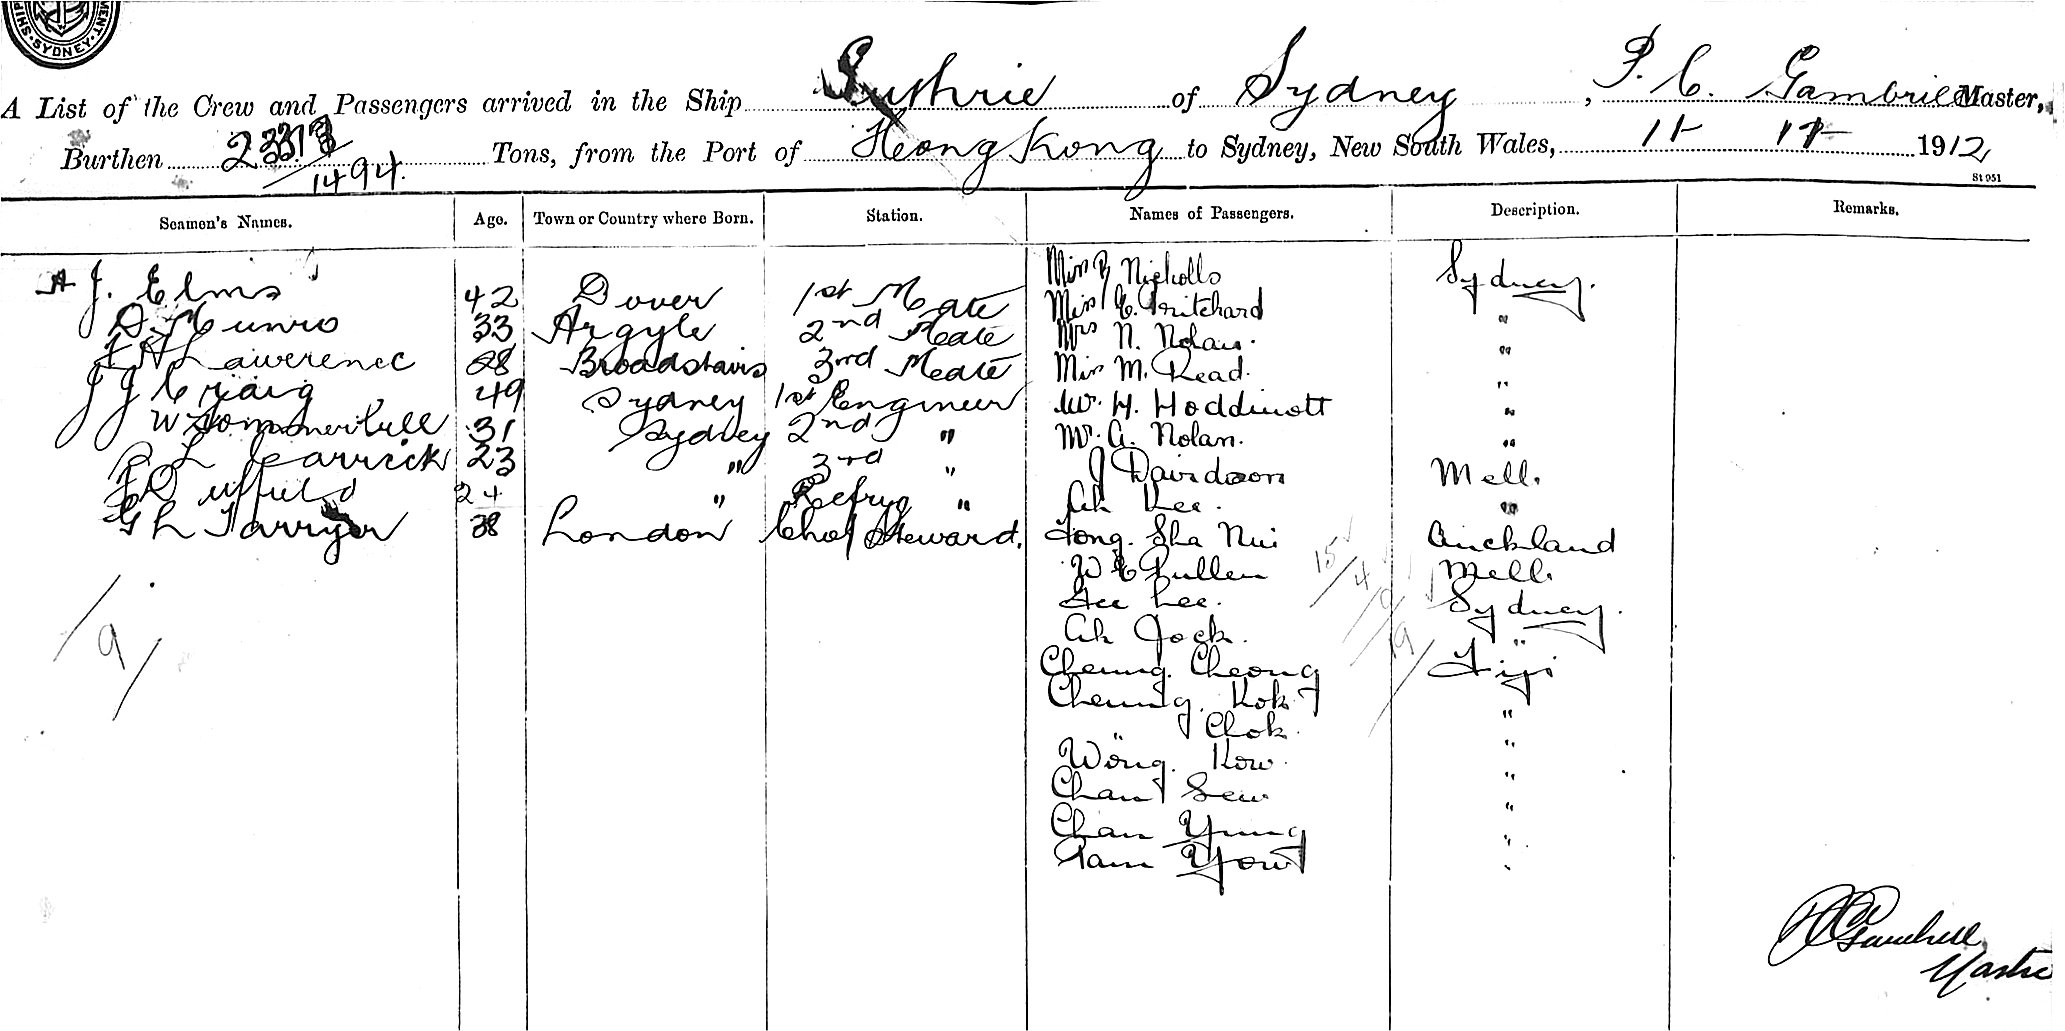 SYDNEY
A List of the Crew and Passengers arrived in the Ship Guthrie of Sydney, P. C. Gambrill Master,
Burthen 2338/1494. Tons, from the Port of Hong Kong to Sydney, New South Wales, 11 11 1912
St 951
Seamen's Names. Age. Town or Country where Born. Station. Names of Passengers. Description. Remarks.
Miss Nicholls Sydney.
A J. Elms 42 Dover 1st Mate Miss E. Pritchard "
D Munro 33 Argyle 2nd Mate Mrs N. Nolan. "
Lawerence 28 Broadstairs 3rd Mate Miss M. Read. "
J J Craig 49 Sydney 1st Engineer Mr. H. Hoddinott "
W Sommerbell 31 Sydney 2nd " Mr. A. Nolan. "
L Carrick 23 " 3rd " J Davidson Mell.
Duffield 24 " Refryg " Ah Kee. "
G L Tarryer 38 London Chef Steward. Tong. Sha Nui Auckland
W E Pullen Mell.
Gee Lee. Sydney.
Ah Jock. "
Cheung. Cheong Fiji
Cheung. Kok "
" Chok. "
Wong. Kow. "
Chan Sew "
Chan Yung "
Tam Yow "
15/4/9/19/
/9/
P C Gambrill
Master